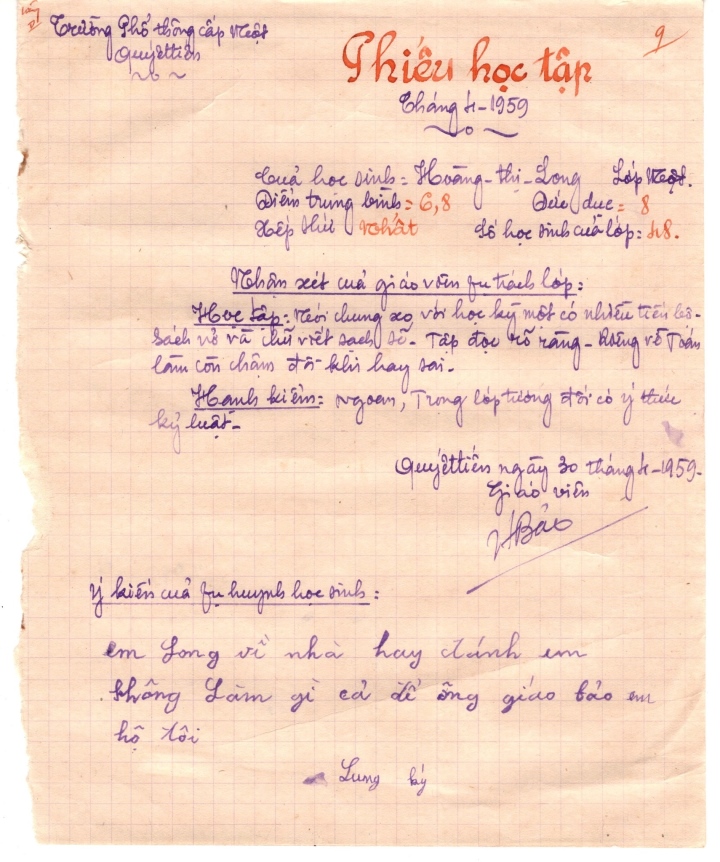 Trường Phổ thông cấp Một
Quyết tiến
9
Phiếu học tập
Tháng 4-1959
Của học sinh: Hoàng-thị-Long Lớp Một.
Điểm trung bình: 6,8 Đức dục: 8
Xếp thứ Nhất Số học sinh của lớp: 48.
Nhận xét của giáo viên fụ trách lớp:
Học tập: Nói chung so với học kỳ một có nhiều tiến bộ-
Sách vở và chữ viết sạch sẽ. Tập đọc rõ ràng- Riêng về Toán
làm còn chậm đôi khi hay sai.
Hạnh kiểm: Ngoan, Trong lớp tương đối có ý thức
kỷ luật-
Quyết tiến ngày 30 tháng 4-1959-
Giáo viên
Bảo
Ý kiến của fụ huynh học sinh:
em Long về nhà hay đánh em
không Làm gì cả để ông giáo bảo em
hộ tôi
Lung ký